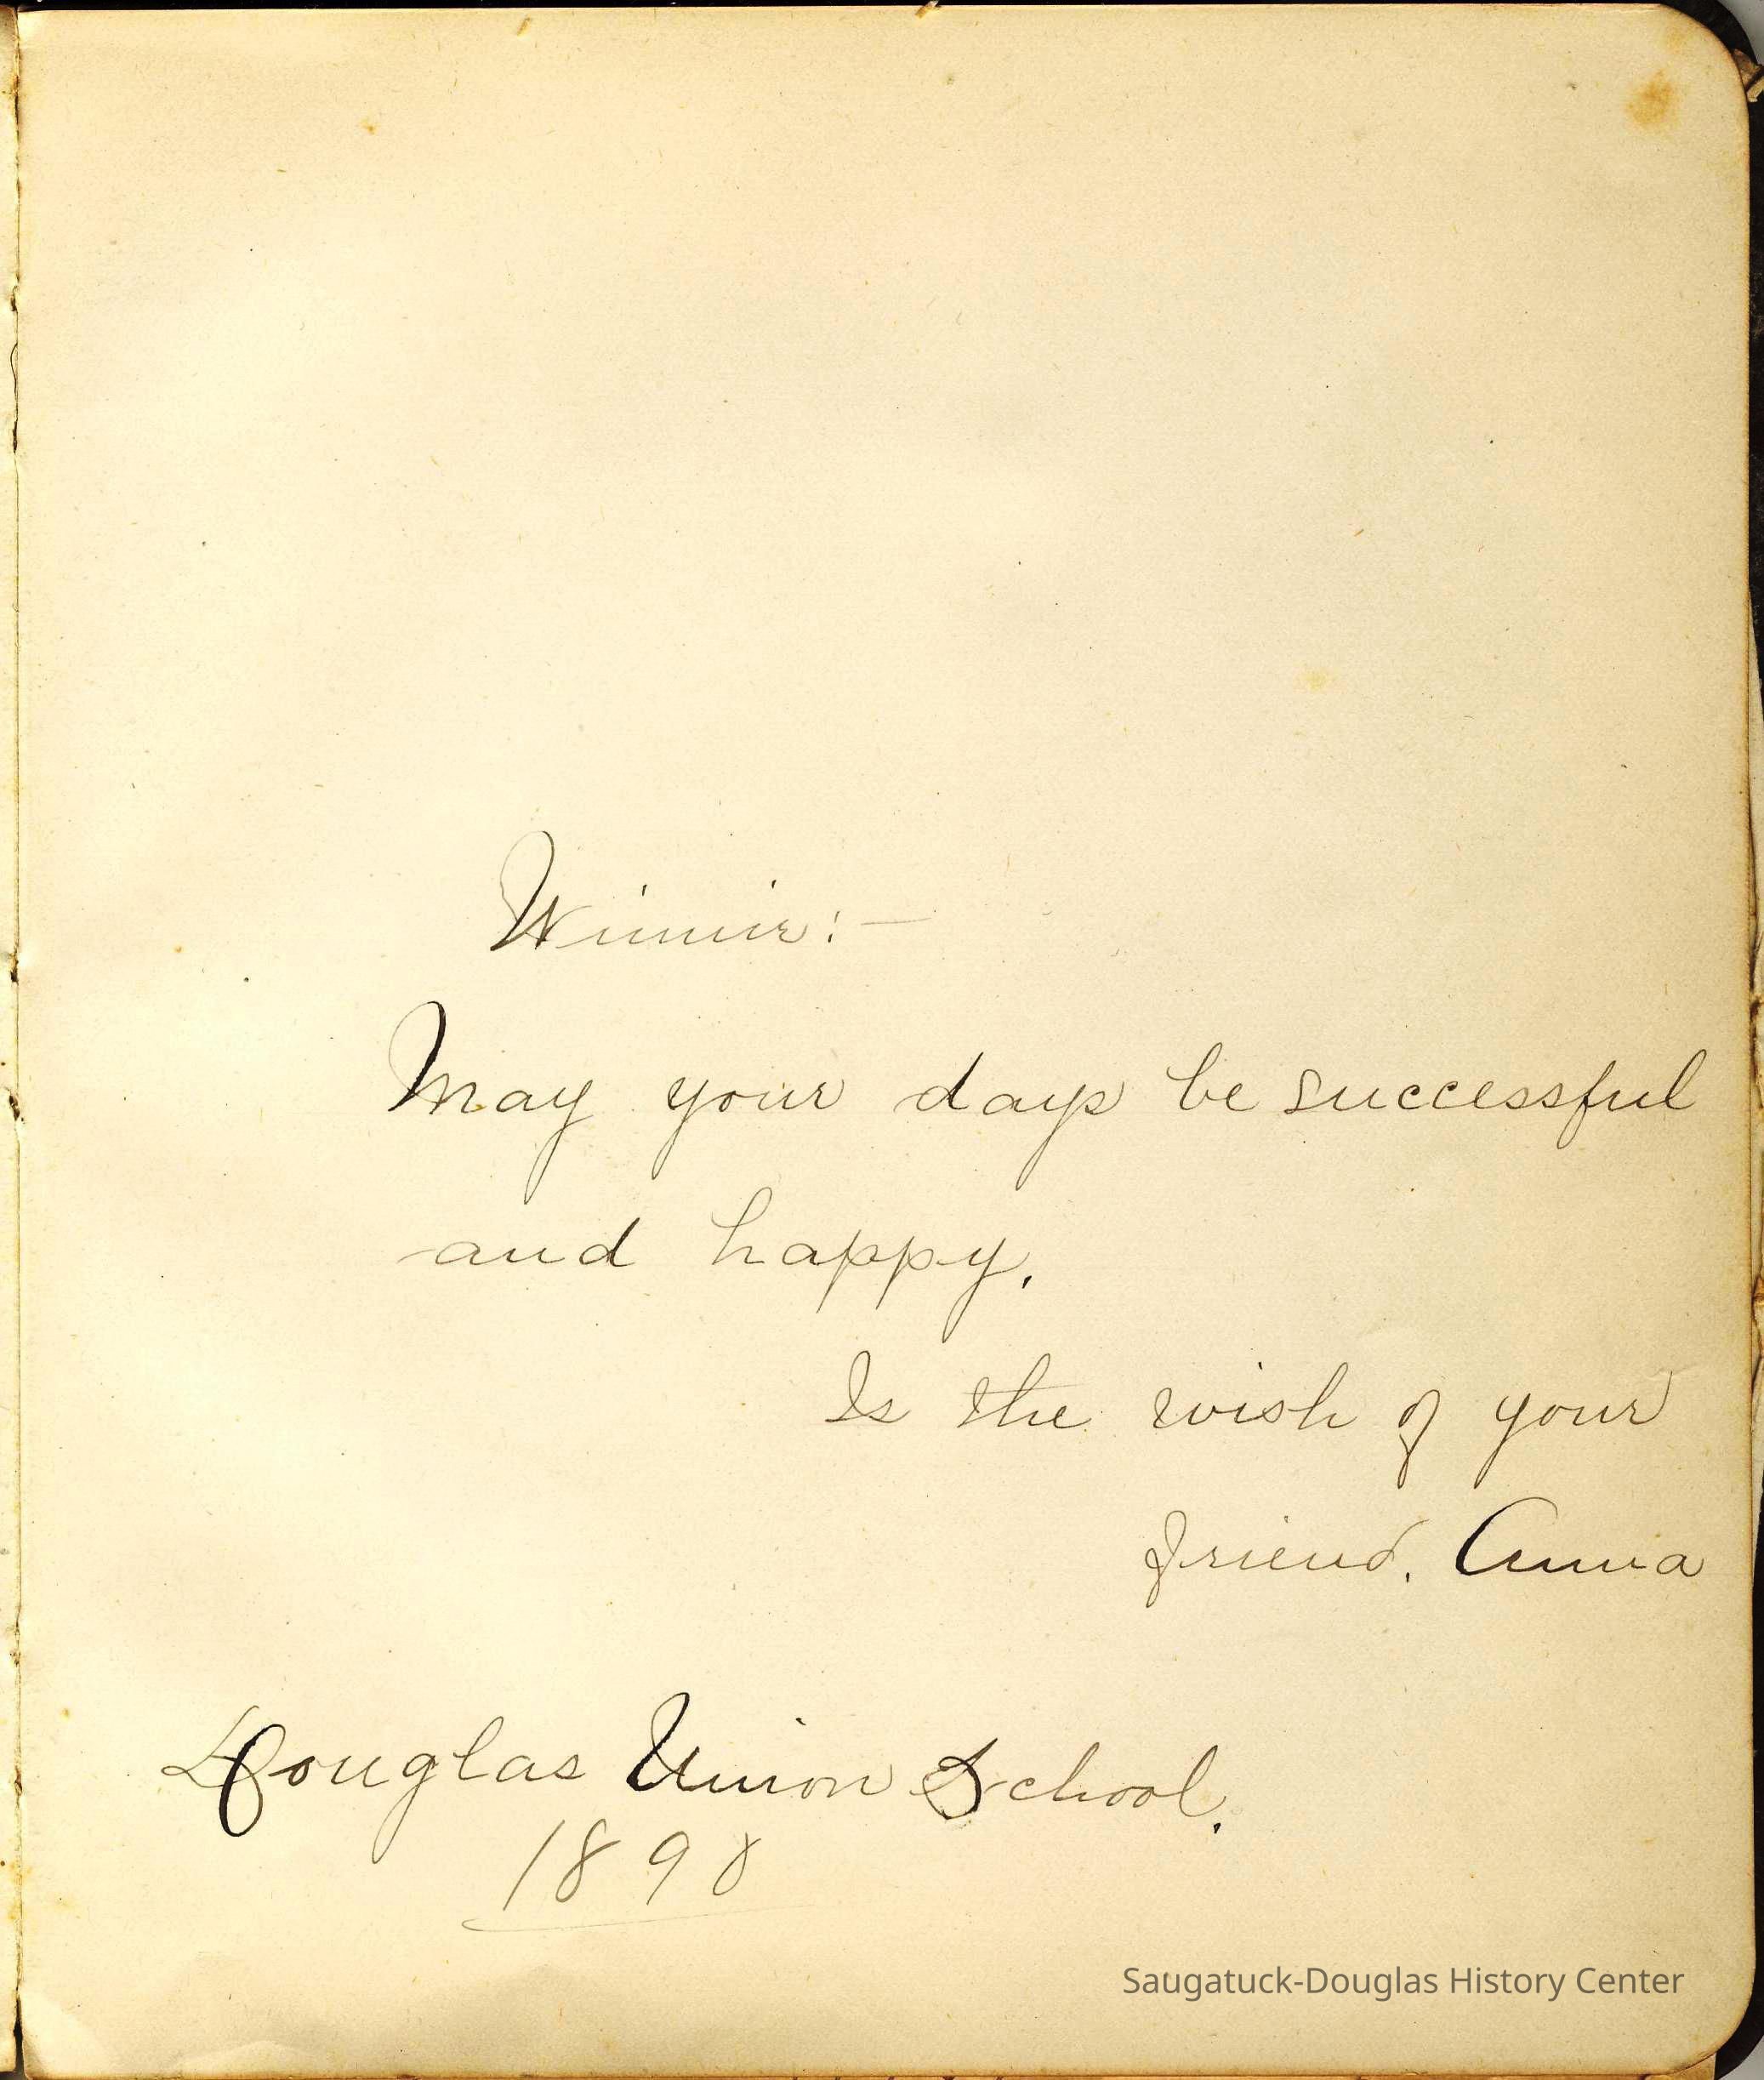 Winnie:—
May your days be successful
and happy.
Is the wish of your
friend. Anna
Douglas Union School.
1890
Saugatuck-Douglas History Center